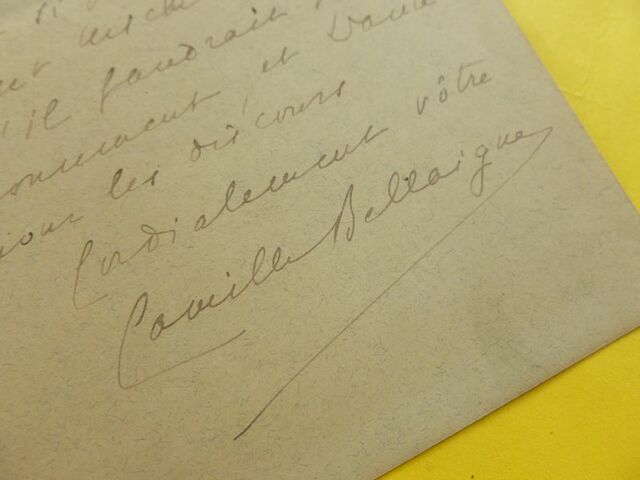 il faudrait
monument, et
pour les discours
Cordialement vôtre
Camille Bellaigue